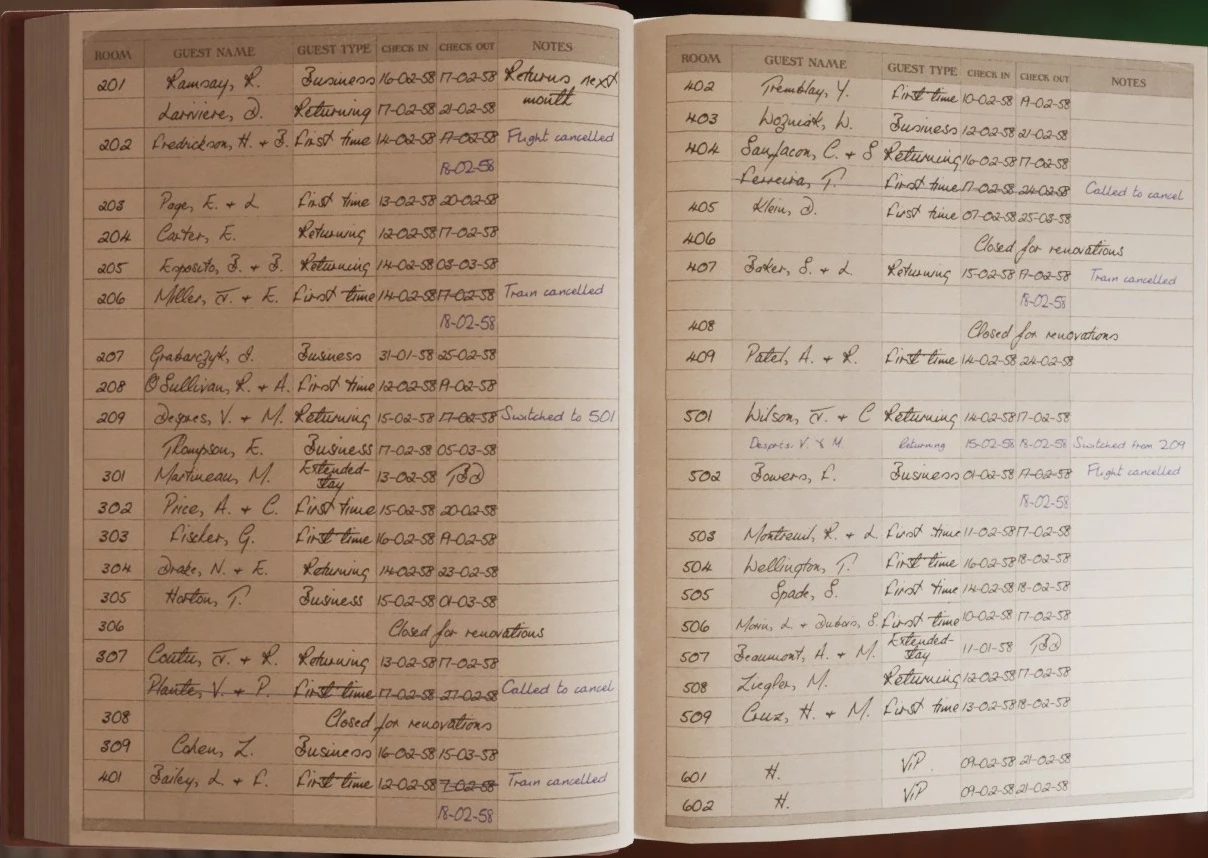 ROOM GUEST NAME GUEST TYPE CHECK IN CHECK OUT NOTES
201 Ramsay, R. Business 16-02-58 17-02-58 Returns next month
Larivière, D. Returning 17-02-58 21-02-58
202 Fredrickson, H. + B. First time 14-02-58 17-02-58 Flight cancelled
18-02-58
203 Page, E. + L First time 13-02-58 20-02-58
204 Carter, E. Returning 12-02-58 17-02-58
205 Esposito, B. + B. Returning 14-02-58 03-03-58
206 Miller, J. + E. First time 14-02-58 17-02-58 Train cancelled
18-02-58
207 Grabarczyk, J. Business 31-01-58 25-02-58
208 O'Sullivan, R. + A. First time 12-02-58 19-02-58
209 Despres, V. + M. Returning 15-02-58 17-02-58 Switched to 501
Thompson, E. Business 17-02-58 05-03-58
301 Martineau, M. Extended-stay 13-02-58 TBD
302 Price, A. + C. First time 15-02-58 20-02-58
303 Fischer, G. First time 16-02-58 19-02-58
304 Drake, N. + E. Returning 14-02-58 23-02-58
305 Horton, T. Business 15-02-58 01-03-58
306 Closed for renovations
307 Coutu, J. + R. Returning 13-02-58 17-02-58
Plante, V. + P. First time 17-02-58 27-02-58 Called to cancel
308 Closed for renovations
309 Cohen, L. Business 16-02-58 15-03-58
401 Bailey, L + F. First time 12-02-58 17-02-58 Train cancelled
18-02-58
ROOM GUEST NAME GUEST TYPE CHECK IN CHECK OUT NOTES
402 Tremblay, Y. First time 10-02-58 19-02-58
403 Wozniak, W. Business 12-02-58 21-02-58
404 Sanfacon, C. + S Returning 16-02-58 17-02-58
Ferreira, T. First time 17-02-58 24-02-58 Called to cancel
405 Klein, D. First time 07-02-58 25-03-58
406 Closed for renovations
407 Baker, S. + L Returning 15-02-58 17-02-58 Train cancelled
18-02-58
408 Closed for renovations
409 Patel, A. + R. First time 14-02-58 24-02-58
501 Wilson, J. + C Returning 14-02-58 17-02-58
Despres, V. + M. Returning 15-02-58 18-02-58 Switched from 209
502 Bowers, F. Business 01-02-58 17-02-58 Flight cancelled
18-02-58
503 Montreuil, R. + L. First time 11-02-58 17-02-58
504 Wellington, T. First time 16-02-58 18-02-58
505 Spade, S. First time 14-02-58 18-02-58
506 Morin, L + Dubois, S. First time 10-02-58 17-02-58
507 Beaumont, A. + M. Extended-stay 11-01-58 TBD
508 Ziegler, M. Returning 12-02-58 17-02-58
509 Cruz, H. + M. First time 13-02-58 18-02-58
601 H. ViP 09-02-58 21-02-58
602 H. ViP 09-02-58 21-02-58